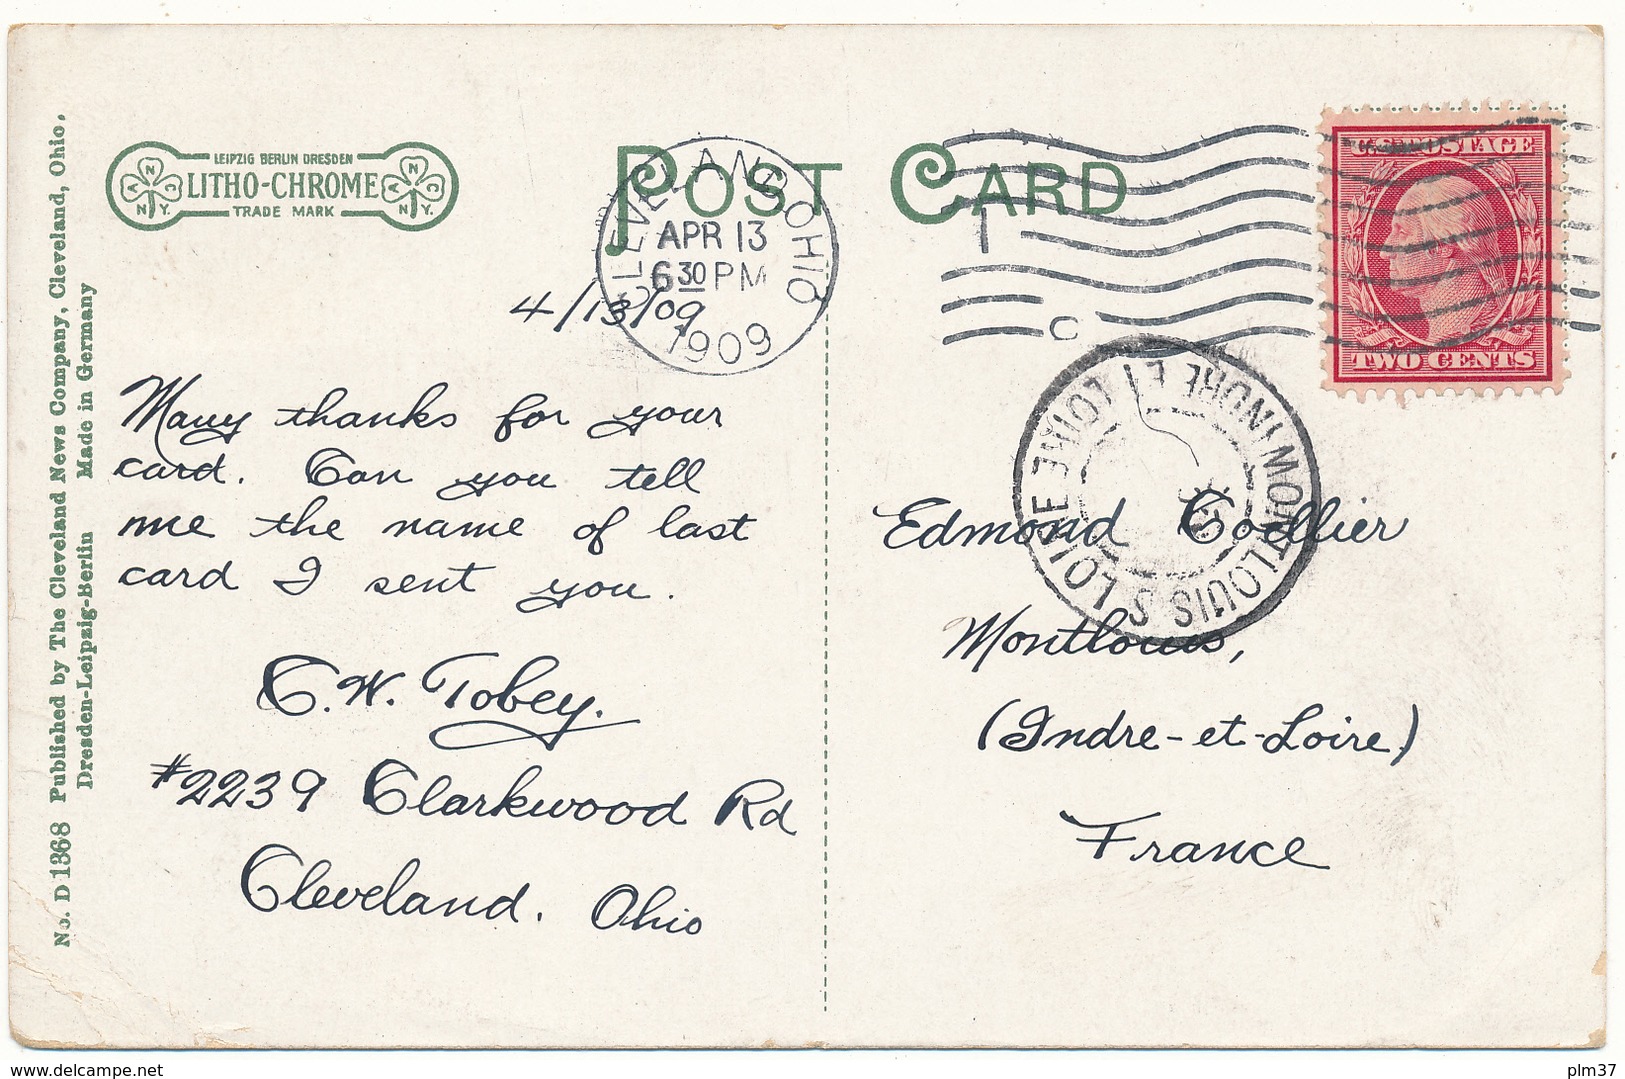 No. D 1368 Published by The Cleveland News Company, Cleveland, Ohio.
Dresden-Leipzig-Berlin Made in Germany
LEIPZIG BERLIN DRESDEN
LITHO-CHROME
TRADE MARK
POST CARD
CLEVELAND, OHIO
APR 13
6 30 PM
1909
U.S. POSTAGE
TWO CENTS
4/13/09
Many thanks for your
card. Can you tell
me the name of last
card I sent you.
C. W. Tobey.
#2239 Clarkwood Rd
Cleveland. Ohio
MONTLOUIS S LOIRE
INDRE ET LOIRE
Edmond
Montlouis,
(Indre-et-Loire)
France
www.delcampe.net
plm37